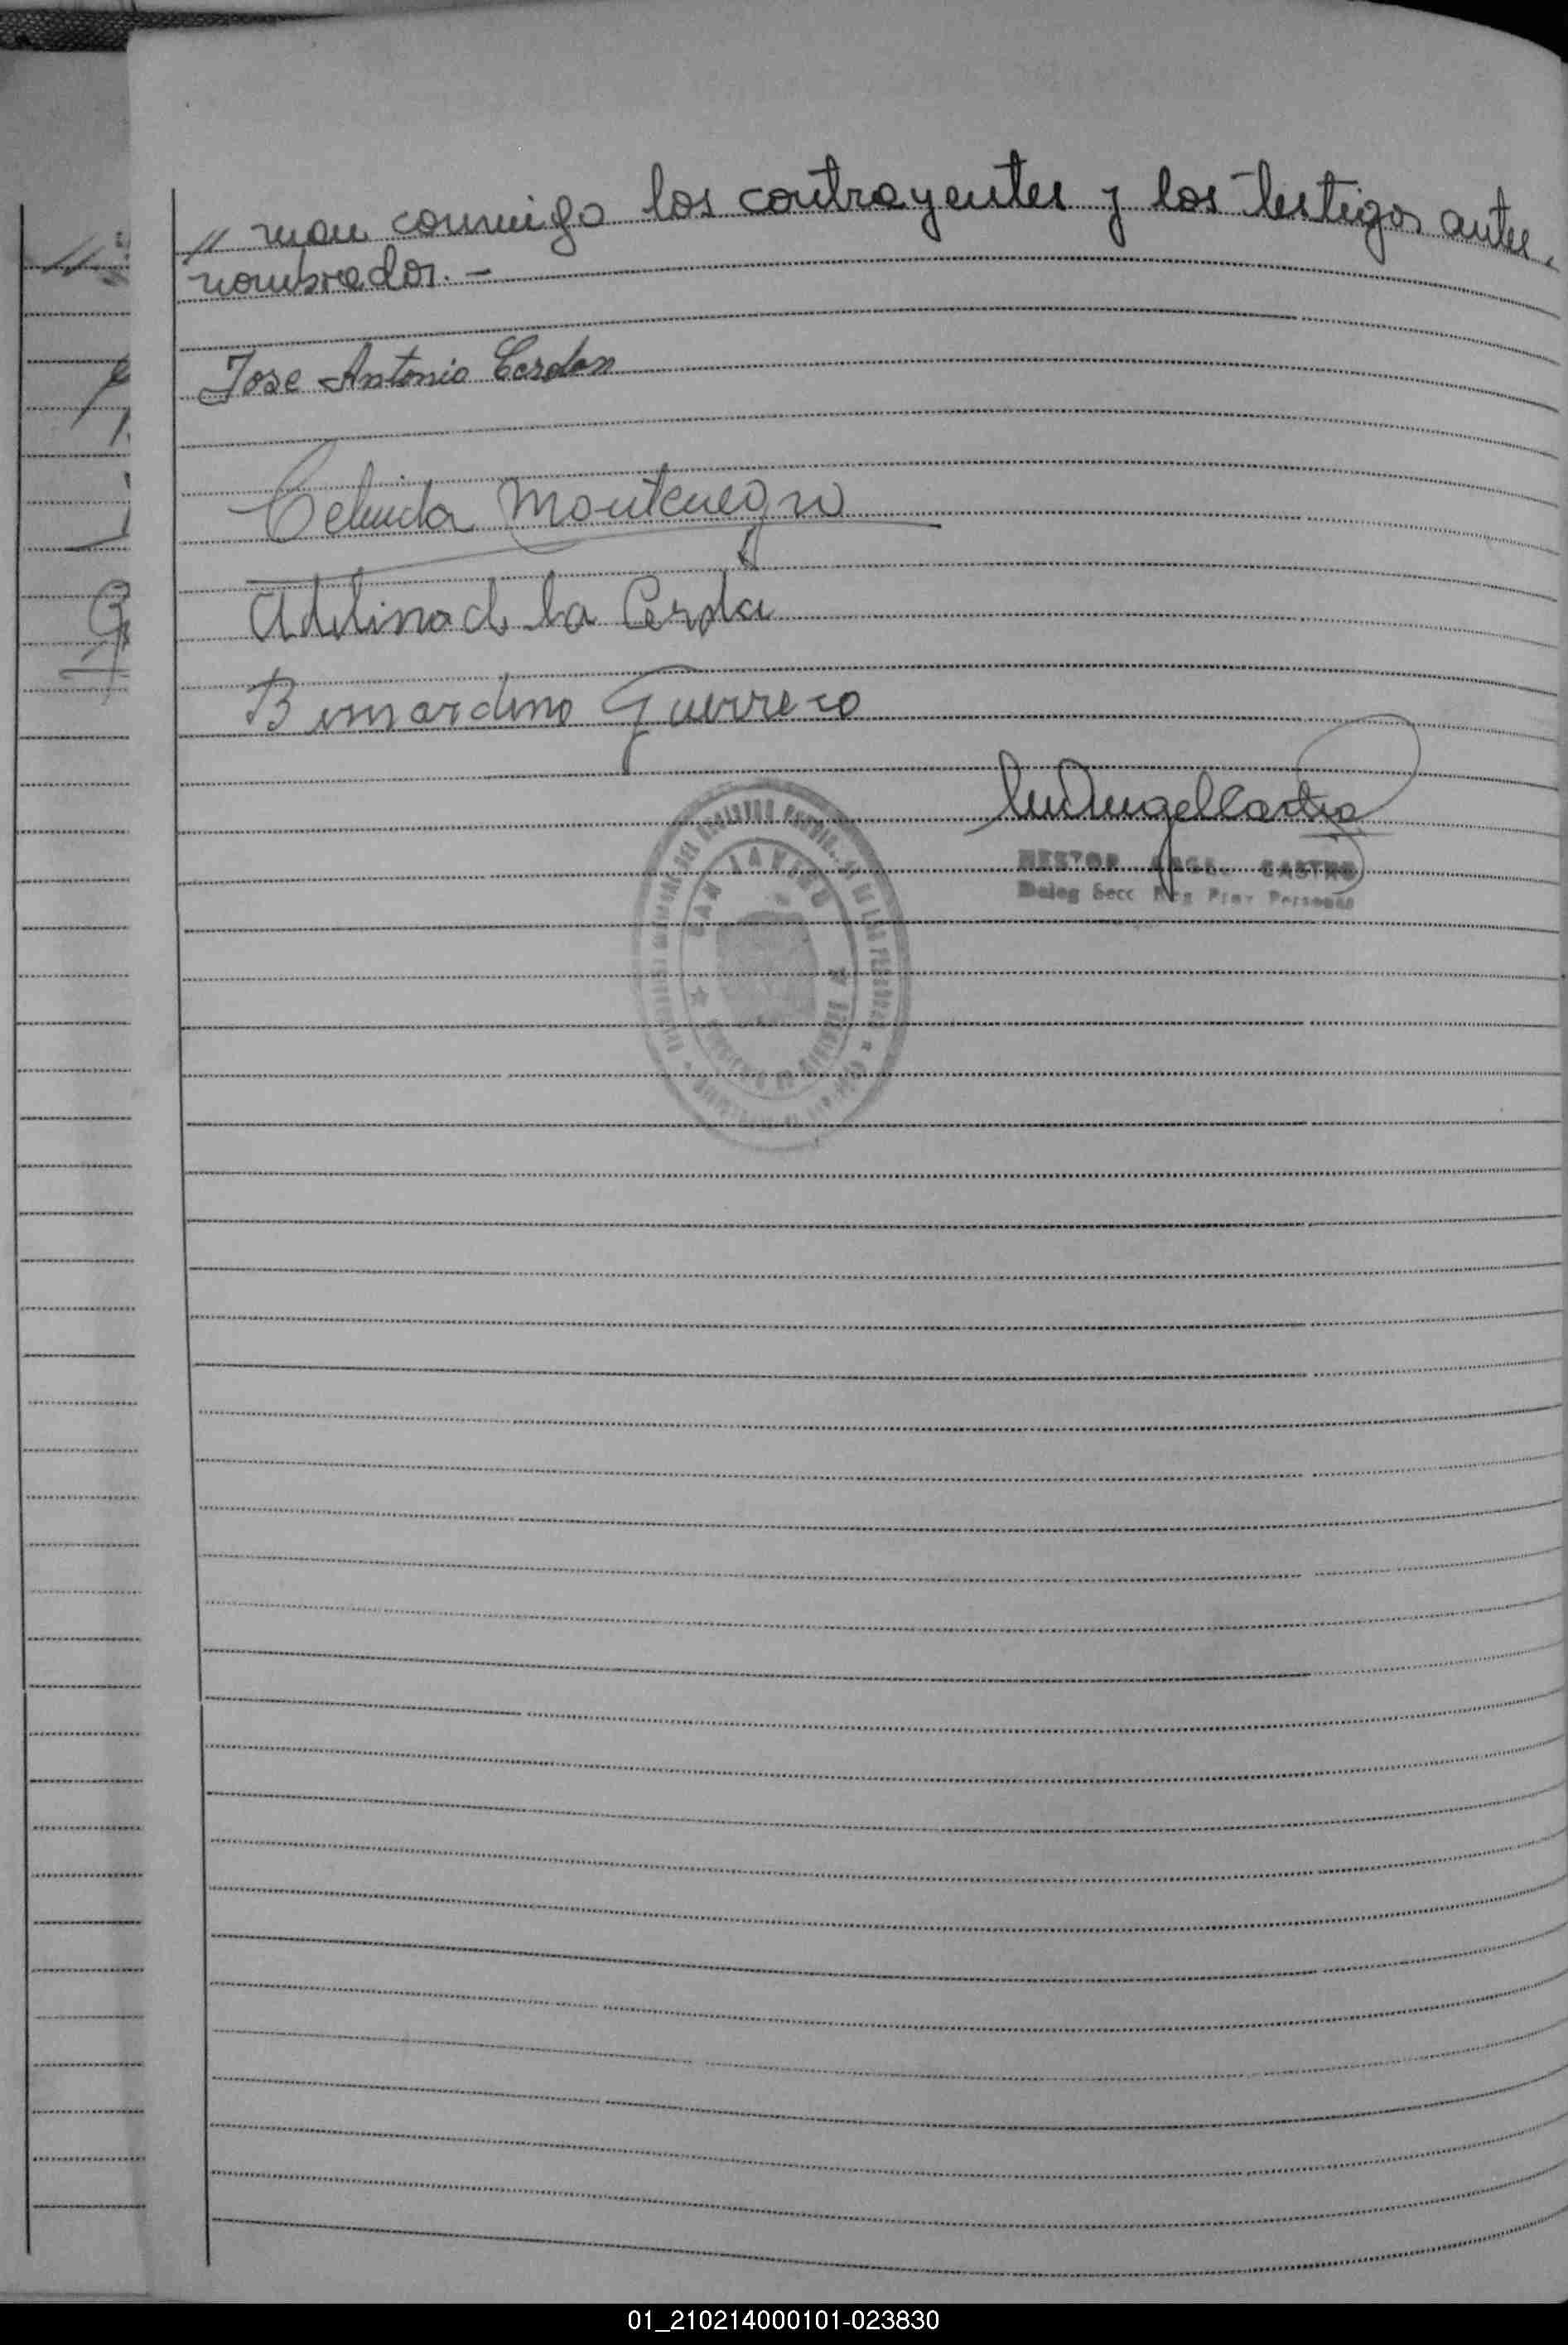 // man conmigo los contrayentes y los testigos antes
nombrados. -
Jose Antonio Cerdan
Celinda Montenegro
Adelina de la Cerda
Bernardino Guerrero
NESTOR ANGEL CASTRO
Deleg Secc Reg Prov Personas
SAN JAVIER
01_210214000101-023830